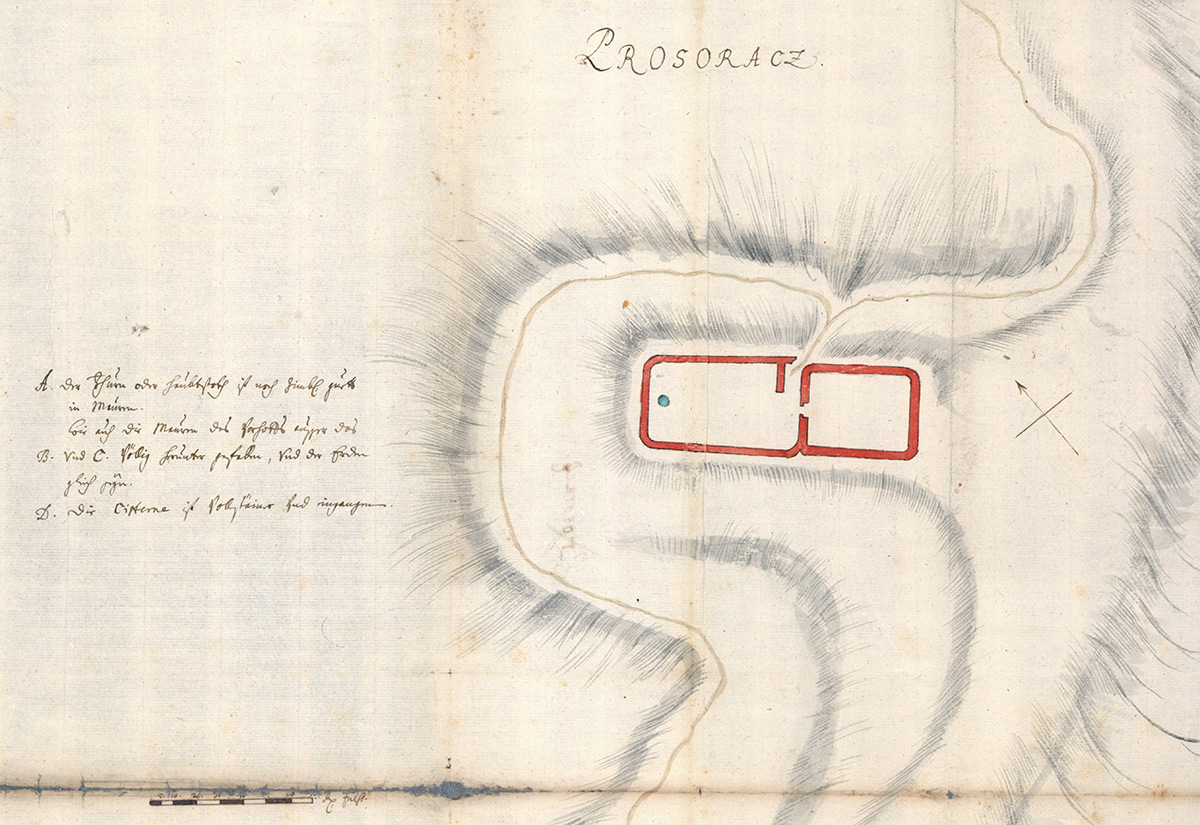 PROSORACZ.
A. der Thurn oder haubtstokh ist noch zimbl. guett
in Mauren.
wie auch die Mauren des Vorhoffs ausser das
B. Vnd C. Völlig herunter gefallen, Vnd der Erden
gleich seyn.
D. Die Cisterne ist Voll stainer Vnd eingangen.